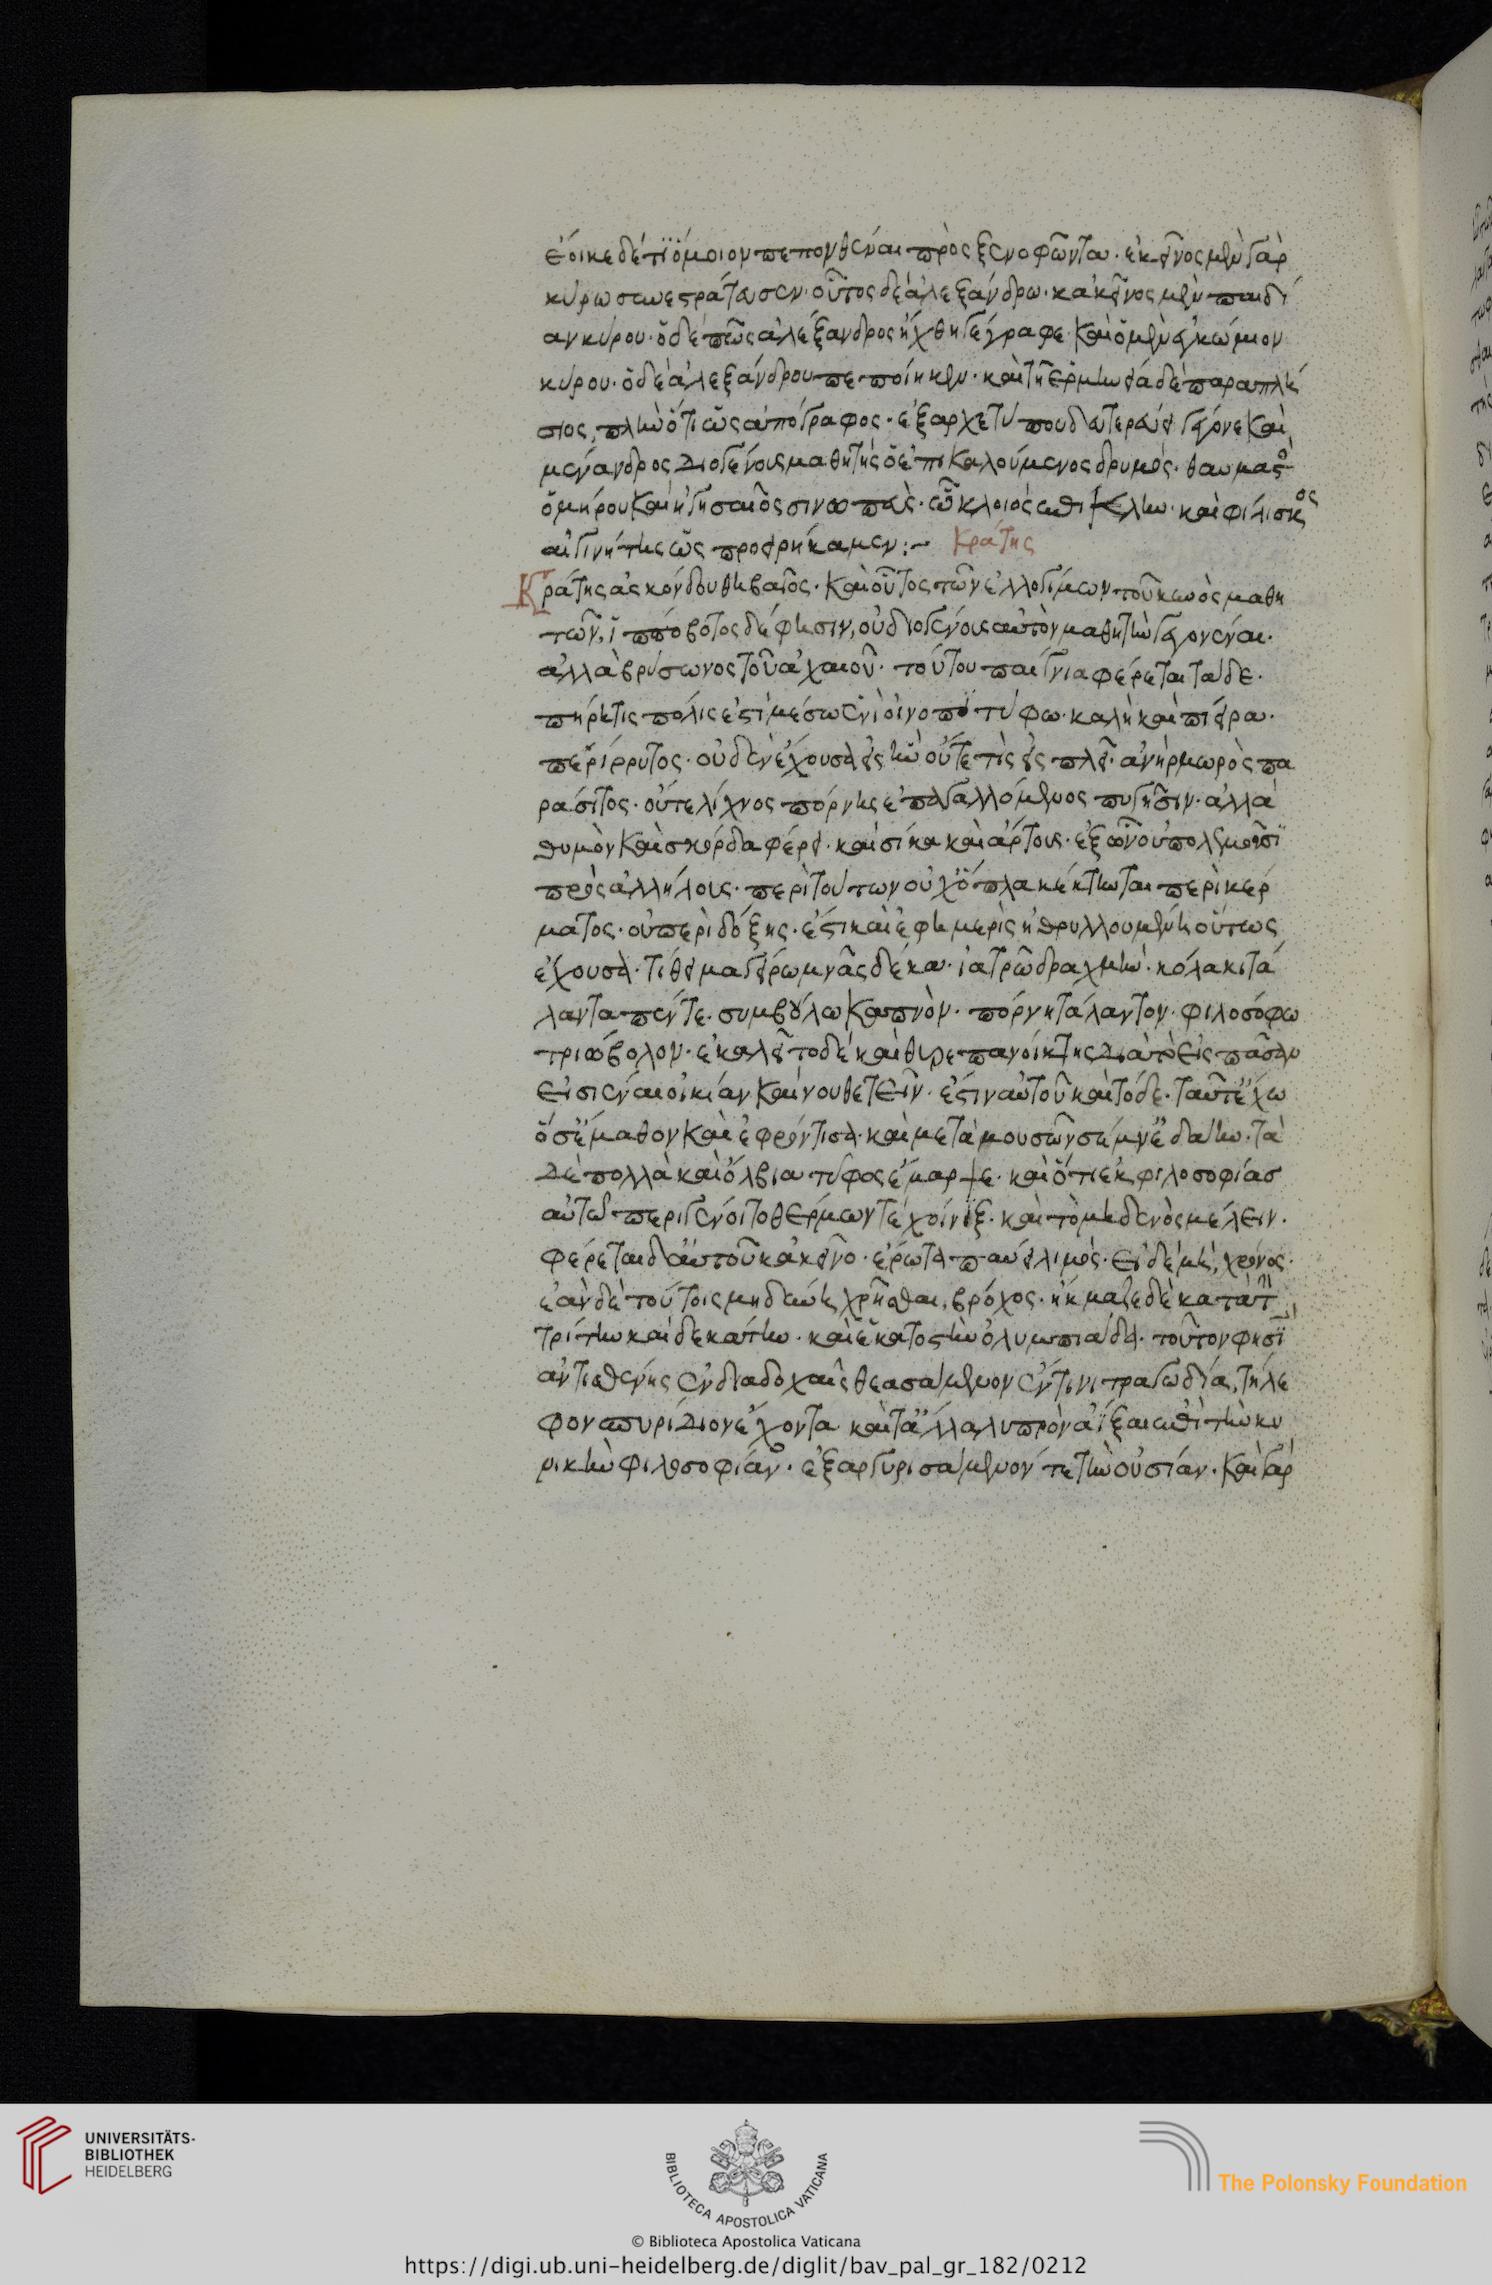 ἔοικε δέ τι ὅμοιον πεπονθέναι πρὸς ξενοφῶντα· ἐκεῖνος μὲν γὰρ
κύρω συνεστράτευσεν· οὗτος δὲ ἀλεξάνδρω· κἀκεῖνος μὲν παιδεί
αν κύρου· ὁ δὲ πῶς ἀλέξανδρος ἤχθη γέγραφε· καὶ ὁ μὲν ἐγκώμιον
κύρου· ὁ δὲ ἀλεξάνδρου πεποίηκεν· καὶ τῆ ἑρμηνεία δὲ παραπλή
σιος, πλὴν ὅτι ὡς ἀπόγραφος· ἐξ ἀρχετύπου δευτερεύει γέγονε καὶ
μένανδρος διογένους μαθητὴς ὁ ἐπικαλούμενος δρυμός· θαυμαστὴς
ὁμήρου καὶ ἡγησαῖος σινωπεὺς· ὧ κλοιὸς ἐπίκλην· καὶ φιλίσκος
αἰγινήτης ὡς προειρήκαμεν:- Κράτης
Κράτης ἀσκόνδου θηβαῖος· καὶ οὗτος τῶν ἐλλογίμων τοῦ κυνὸς μαθη
τῶν, ἱππόβοτος δέ φησιν, οὐ διογένους αὐτὸν μαθητὴν γεγονέναι·
ἀλλὰ βρύσωνος τοῦ ἀχαιοῦ· τούτου παίγνια φέρεται τάδε·
πήρη τις πόλις ἐστὶ μέσω ἐνὶ οἴνοπι τύφω· καλὴ καὶ πίειρα·
περίρρυτος· οὐδὲν ἔχουσα εἰς ἣν οὔτε τὶς εἰς πλεῖ· ἀνὴρ μωρὸς πα
ράσιτος· οὔτε λίχνος πόρνης ἐπαγαλλόμενος πυγῆσιν· ἀλλὰ
θυμὸν καὶ σκόρδα φέρει· καὶ σίκα καὶ ἄρτους· ἐξ ὧν οὐ πολεμοῦσι
πρὸς ἀλλήλους· περὶ τούτων οὐχ ὅπλα κέκτηνται περὶ κέρ
ματος· οὐ περὶ δόξης· ἔστι καὶ ἐφημερὶς ἡ θρυλλουμένη οὕτως
ἔχουσα· τίθει μαγείρω μνᾶς δέκα· ἰατρῶ δραχμὴν· κόλακι τά
λαντα πέντε· συμβούλω καπνὸν· πόρνη τάλαντον· φιλοσόφω
τριώβολον· ἐκαλεῖτο δὲ καὶ θυρεπανοίκτης διὰ τὸ εἰς πᾶσαν
εἰσιέναι οἰκίαν καὶ νουθετεῖν· ἔστιν αὐτοῦ καὶ τόδε· ταῦτ' ἔχω
ὅσ' ἔμαθον καὶ ἐφρόντισα· καὶ μετὰ μουσῶν σέμν' ἐδάην· τὰ
δὲ πολλὰ καὶ ὄλβια τύφος ἔμαρψε· καὶ ὅτι ἐκ φιλοσοφίας
αὐτῶ περιγένοιτο θέρμων τε χοίνιξ· καὶ τὸ μηδενὸς μέλειν·
φέρεται δ' αὐτοῦ κἀκεῖνο· ἔρωτα παύει λιμός· εἰ δὲ μὴ, χρόνος·
ἐὰν δὲ τούτοις μὴ δύνη χρῆσθαι, βρόχος· ἤκμαζε δὲ κατὰ τ
τρίτην καὶ δεκάτην· καὶ ἑκατοστὴν ὀλυμπιάδα· τοῦτον φησὶ
ἀντισθένης ἐν διαδοχαῖς θεασάμενον ἔν τινι τραγωδία, τήλε
φον σπυρίδιον ἔχοντα καὶ τἄλλα λυπρὸν ἀΐξαι ἐπὶ τὴν κυ
νικὴν φιλοσοφίαν· ἐξαργυρισάμενόν τε τὴν οὐσίαν· καὶ γὰρ
UNIVERSITÄTS-
BIBLIOTHEK
HEIDELBERG
BIBLIOTECA APOSTOLICA VATICANA
The Polonsky Foundation
© Biblioteca Apostolica Vaticana
https://digi.ub.uni-heidelberg.de/diglit/bav_pal_gr_182/0212